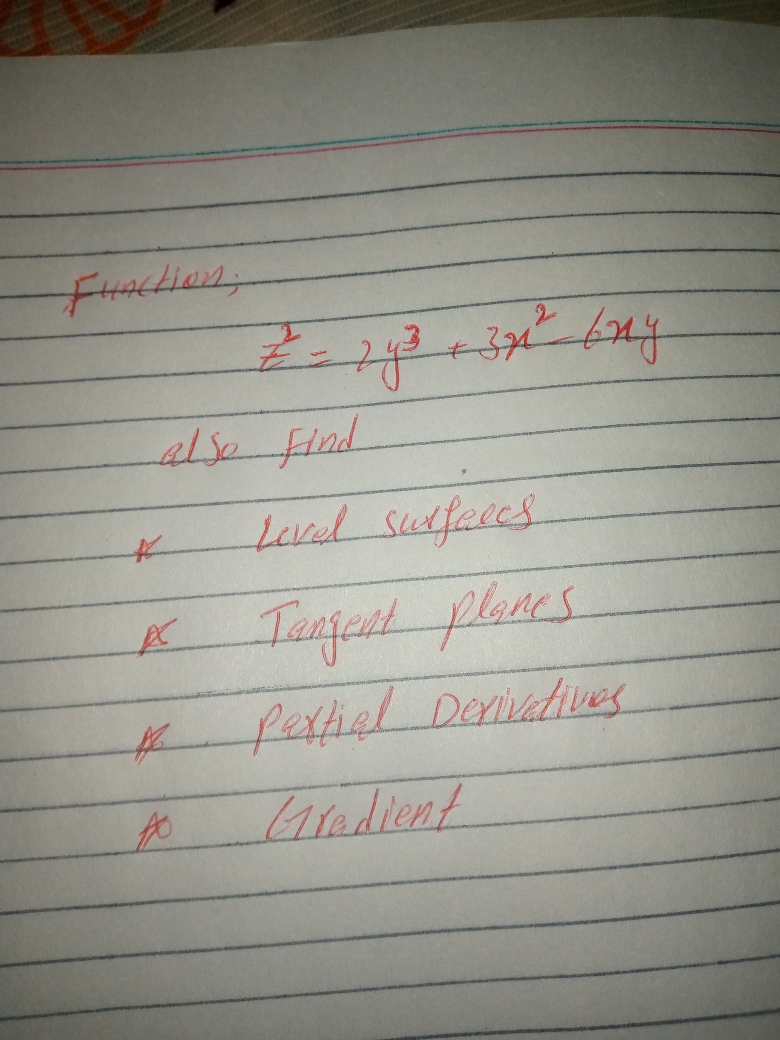 Function;
z² = 2y³ + 3x² - 6xy
also Find
* Level surfaces
* Tangent planes
* Partial Derivatives
* Gradient